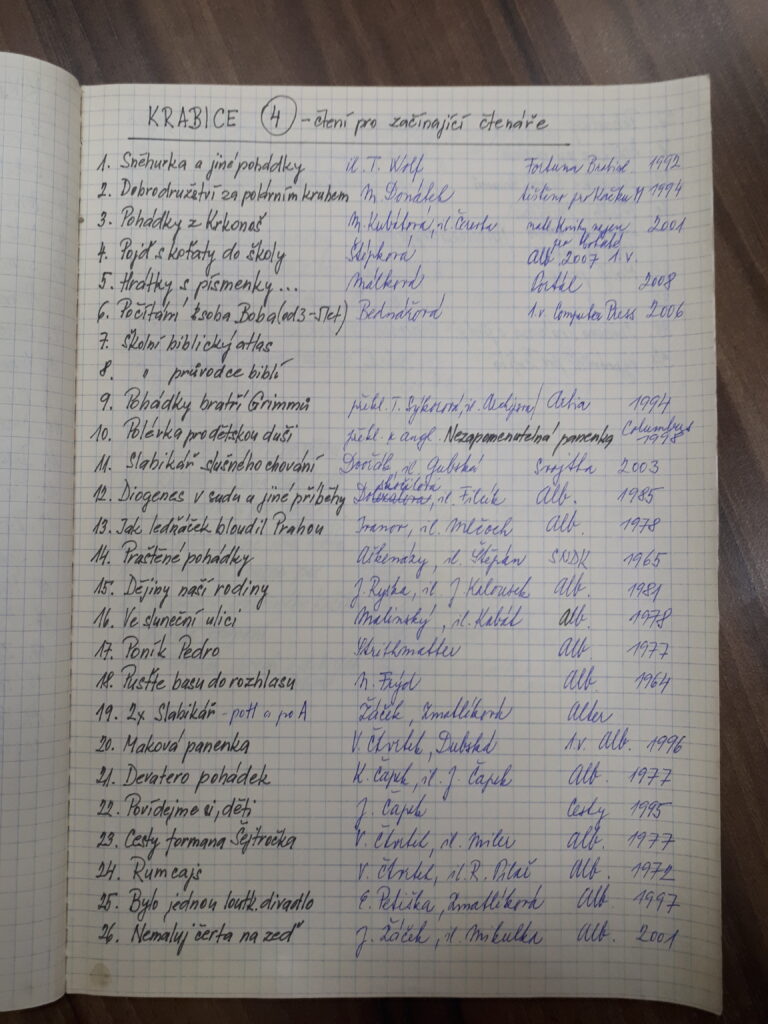 KRABICE 4 - čtení pro začínající čtenáře
1. Sněhurka a jiné pohádky il. T. Wolf Fortuna Bratisl. 1992
2. Dobrodružství za polárním kruhem M. Donátek tištěno pro Kačku 1994
3. Pohádky z Krkonoš M. Kubátová, il. 2001
4. Pojď s koťaty do školy Štěpková Alb. 2007 1.v.
5. Hrátky s písmenky... Málková Portál 2008
6. Počítání z soba Boba (od 3-5 let) Bednářová 1.v. Computer Press 2006
7. Školní biblický atlas
8. " průvodce biblí
9. Pohádky bratří Grimmů překl. T. Sýkorová, il. Artia 1994
10. Polévka pro dětskou duši překl. z angl. Nezapomenutelná panenka Columbus 1998
11. Slabikář slušného chování Dvořák, il. Gubská Svojtka 2003
12. Diogenes v sudu a jiné příběhy Doskočilová, il. Filcík Alb. 1985
13. Jak ledňáček bloudil Prahou Ivanov, il. Mlčoch Alb. 1978
14. Praštěné pohádky Aškenázy, il. Štěpán SNDK 1965
15. Dějiny naší rodiny J. Ryska, il J. Kalousek Alb. 1981
16. Ve sluneční ulici Malinský, il. Kabát Alb. 1978
17. Poník Pedro Strittmatter Alb 1977
18. Pusťte basu do rozhlasu N. Frýd Alb. 1964
19. 2x Slabikář - potl a po A Žáček, Zmatlíková Alter
20. Maková panenka V. Čtvrtek, Dubská 1.v. Alb. 1996
21. Devatero pohádek K. Čapek, il. J. Čapek Alb. 1977
22. Povídejme si, děti J. Čapek Cesty 1995
23. Cesty formana Šejtročka V. Čtvrtek, il. Miler Alb. 1977
24. Rumcajs V. Čtvrtek, il. R. Pilař Alb. 1972
25. Bylo jednou loutk. divadlo E. Petiška, Zmatlíková Alb. 1997
26. Nemaluj čerta na zeď J. Žáček, il Mikulka Alb. 2001